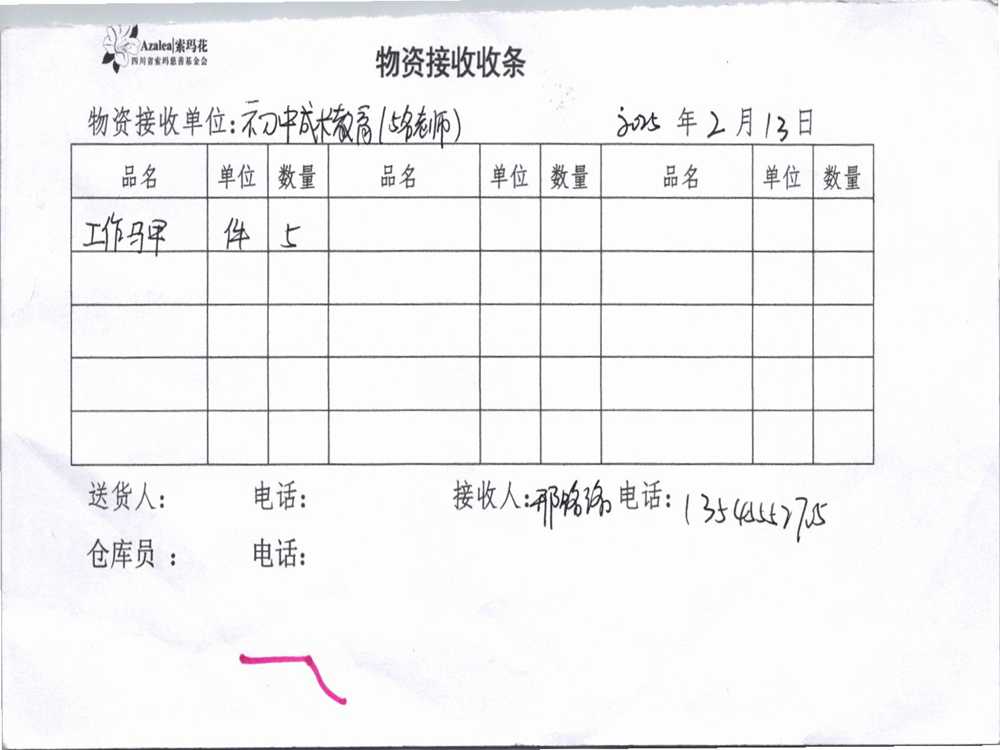 Azalea|索玛花
四川省索玛慈善基金会
物资接收收条
物资接收单位:初中成长教育(珞老师) 2025 年 2 月 13 日
品名 单位 数量 品名 单位 数量 品名 单位 数量
工作马甲 件 5
送货人: 电话: 接收人:邢珞珞 电话:
仓库员 : 电话: